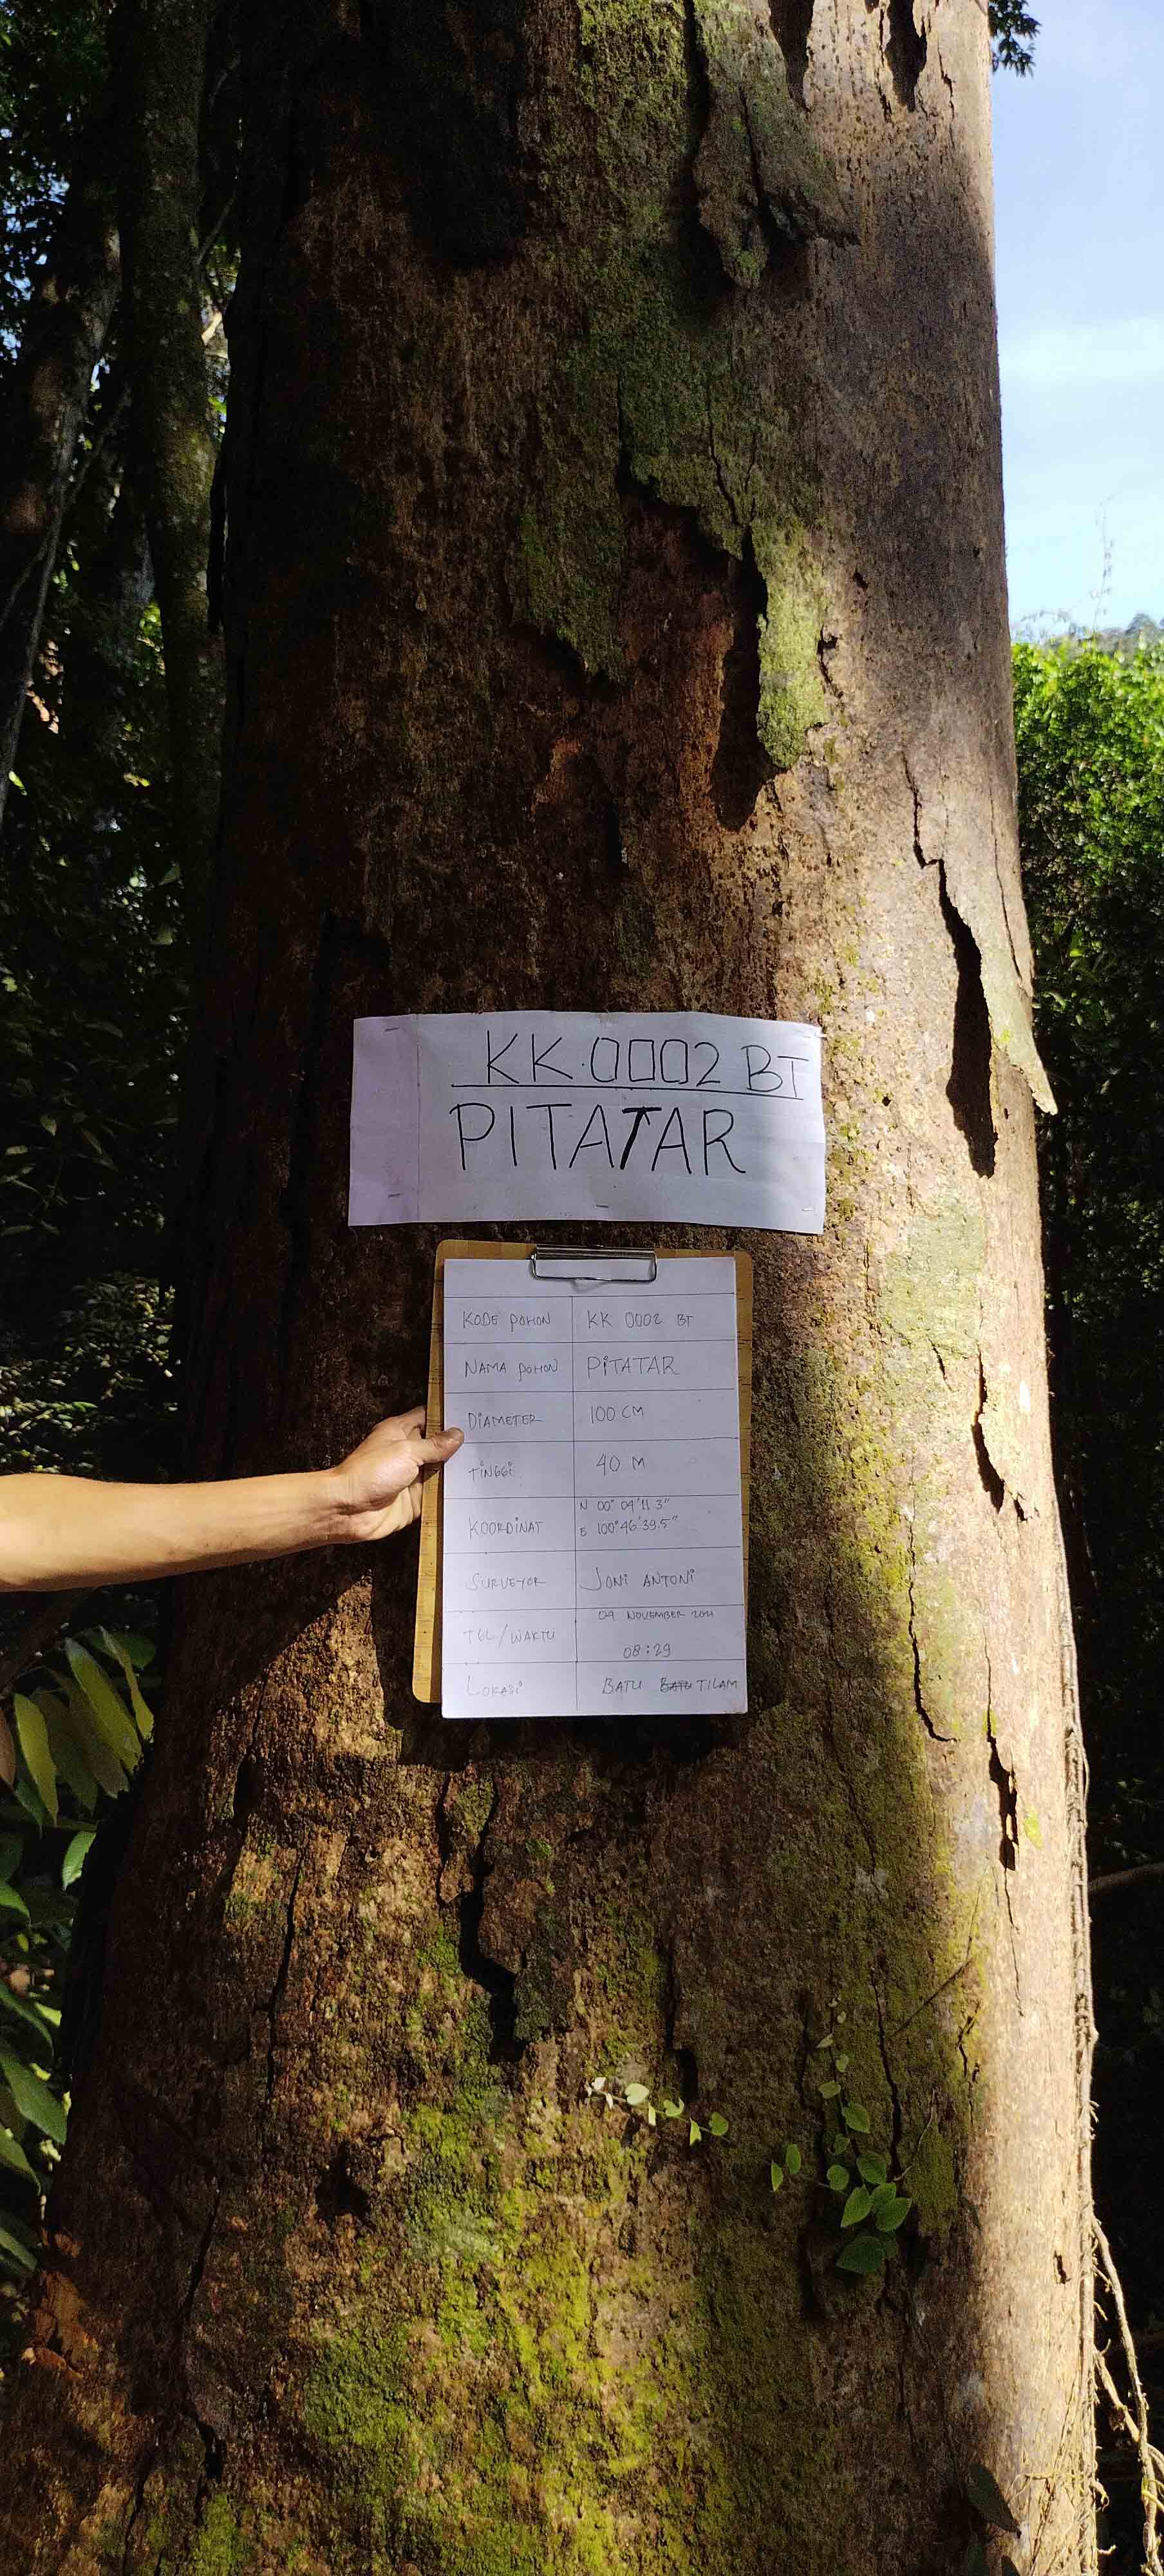 KK.0002 BT
PITATAR
KODE POHON KK 0002 BT
NAMA POHON PiTATAR
DiAMETER 100 CM
TiNGGi 40 M
KOORDINAT N 00° 04' 11.3"
E 100° 46' 39.5"
SURVEYOR JONi ANTONi
TGL/WAKTU NOVEMBER
08:29
LOKASi BATU BATU TILAM